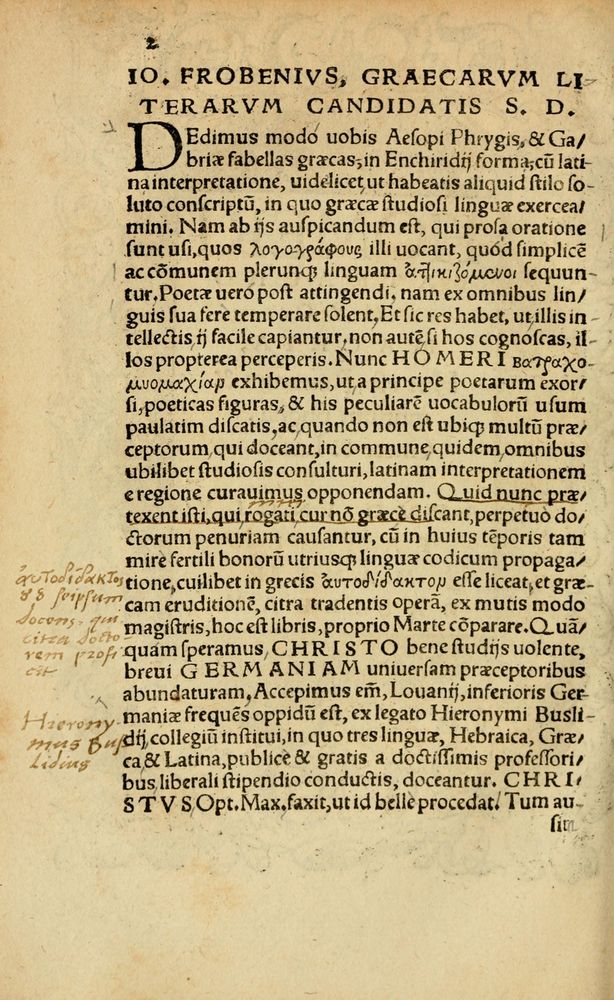 2
IO. FROBENIVS, GRAECARVM LI
TERARVM CANDIDATIS S. D.
DEdimus modo uobis Aesopi Phrygis, & Ga/
briæ fabellas græcas, in Enchiridij forma, cū lati
na interpretatione, uidelicet, ut habeatis aliquid stilo so/
luto conscriptū, in quo græcæ studiosi linguæ exercea/
mini. Nam ab ijs auspicandum est, qui prosa oratione
sunt usi, quos λογογράφους illi uocant, quòd simplicē
ac cōmunem plerunq; linguam ἀττικιζόμενοι sequun-
tur. Poetæ uero post attingendi, nam ex omnibus lin/
guis sua fere temperare solent. Et sic res habet, ut illis in
tellectis, ij facile capiantur, non autē si hos cognoscas, il/
los propterea perceperis. Nunc HOMERI βατραχο-
μυομαχίαν exhibemus, ut a principe poetarum exor/
si, poeticas figuras, & his peculiarē uocabulorū usum
paulatim discatis, ac, quando non est ubiq; multū præ/
ceptorum, qui doceant, in commune quidem, omnibus
ubilibet studiosis consulturi, latinam interpretationem
e regione curauimus opponendam. Quid nunc præ/
texent isti, qui rogati, cur nō græce discant, perpetuo do/
ctorum penuriam causantur, cū in huius tēporis tam
mire fertili bonorū utriusq; linguæ codicum propaga/
tione, cuilibet in grecis αὐτοδίδακτον esse liceat, et græ-
cam eruditionē, citra tradentis operā, ex mutis modo
magistris, hoc est libris, proprio Marte cōparare. Quā/
quam speramus, CHRISTO bene studijs uolente,
breui GERMANIAM uniuersam præceptoribus
abundaturam. Accepimus em̄, Louanij, inferioris Ger
maniæ frequēs oppidū est, ex legato Hieronymi Busli-
dij, collegiū institui, in quo tres linguæ, Hebraica, Græ/
ca, & Latina, publice & gratis a doctissimis professori/
bus, liberali stipendio conductis, doceantur. CHRI-
STVS Opt. Max. faxit, ut id belle procedat. Tum au-
sim
αυτοδιδακτος
seipsum
docens, qui
citra docto
rem profi
cit
Hierony-
mus Bus
lidius